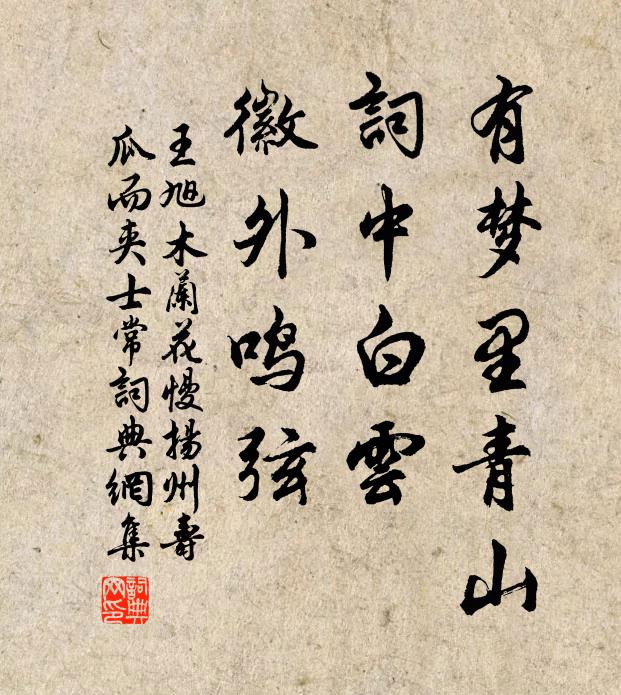 有梦里青山
詞中白雲
徽外鸣弦
王旭木蘭花慢揚州壽
瓜而夹士常詞典網集
詞典网印